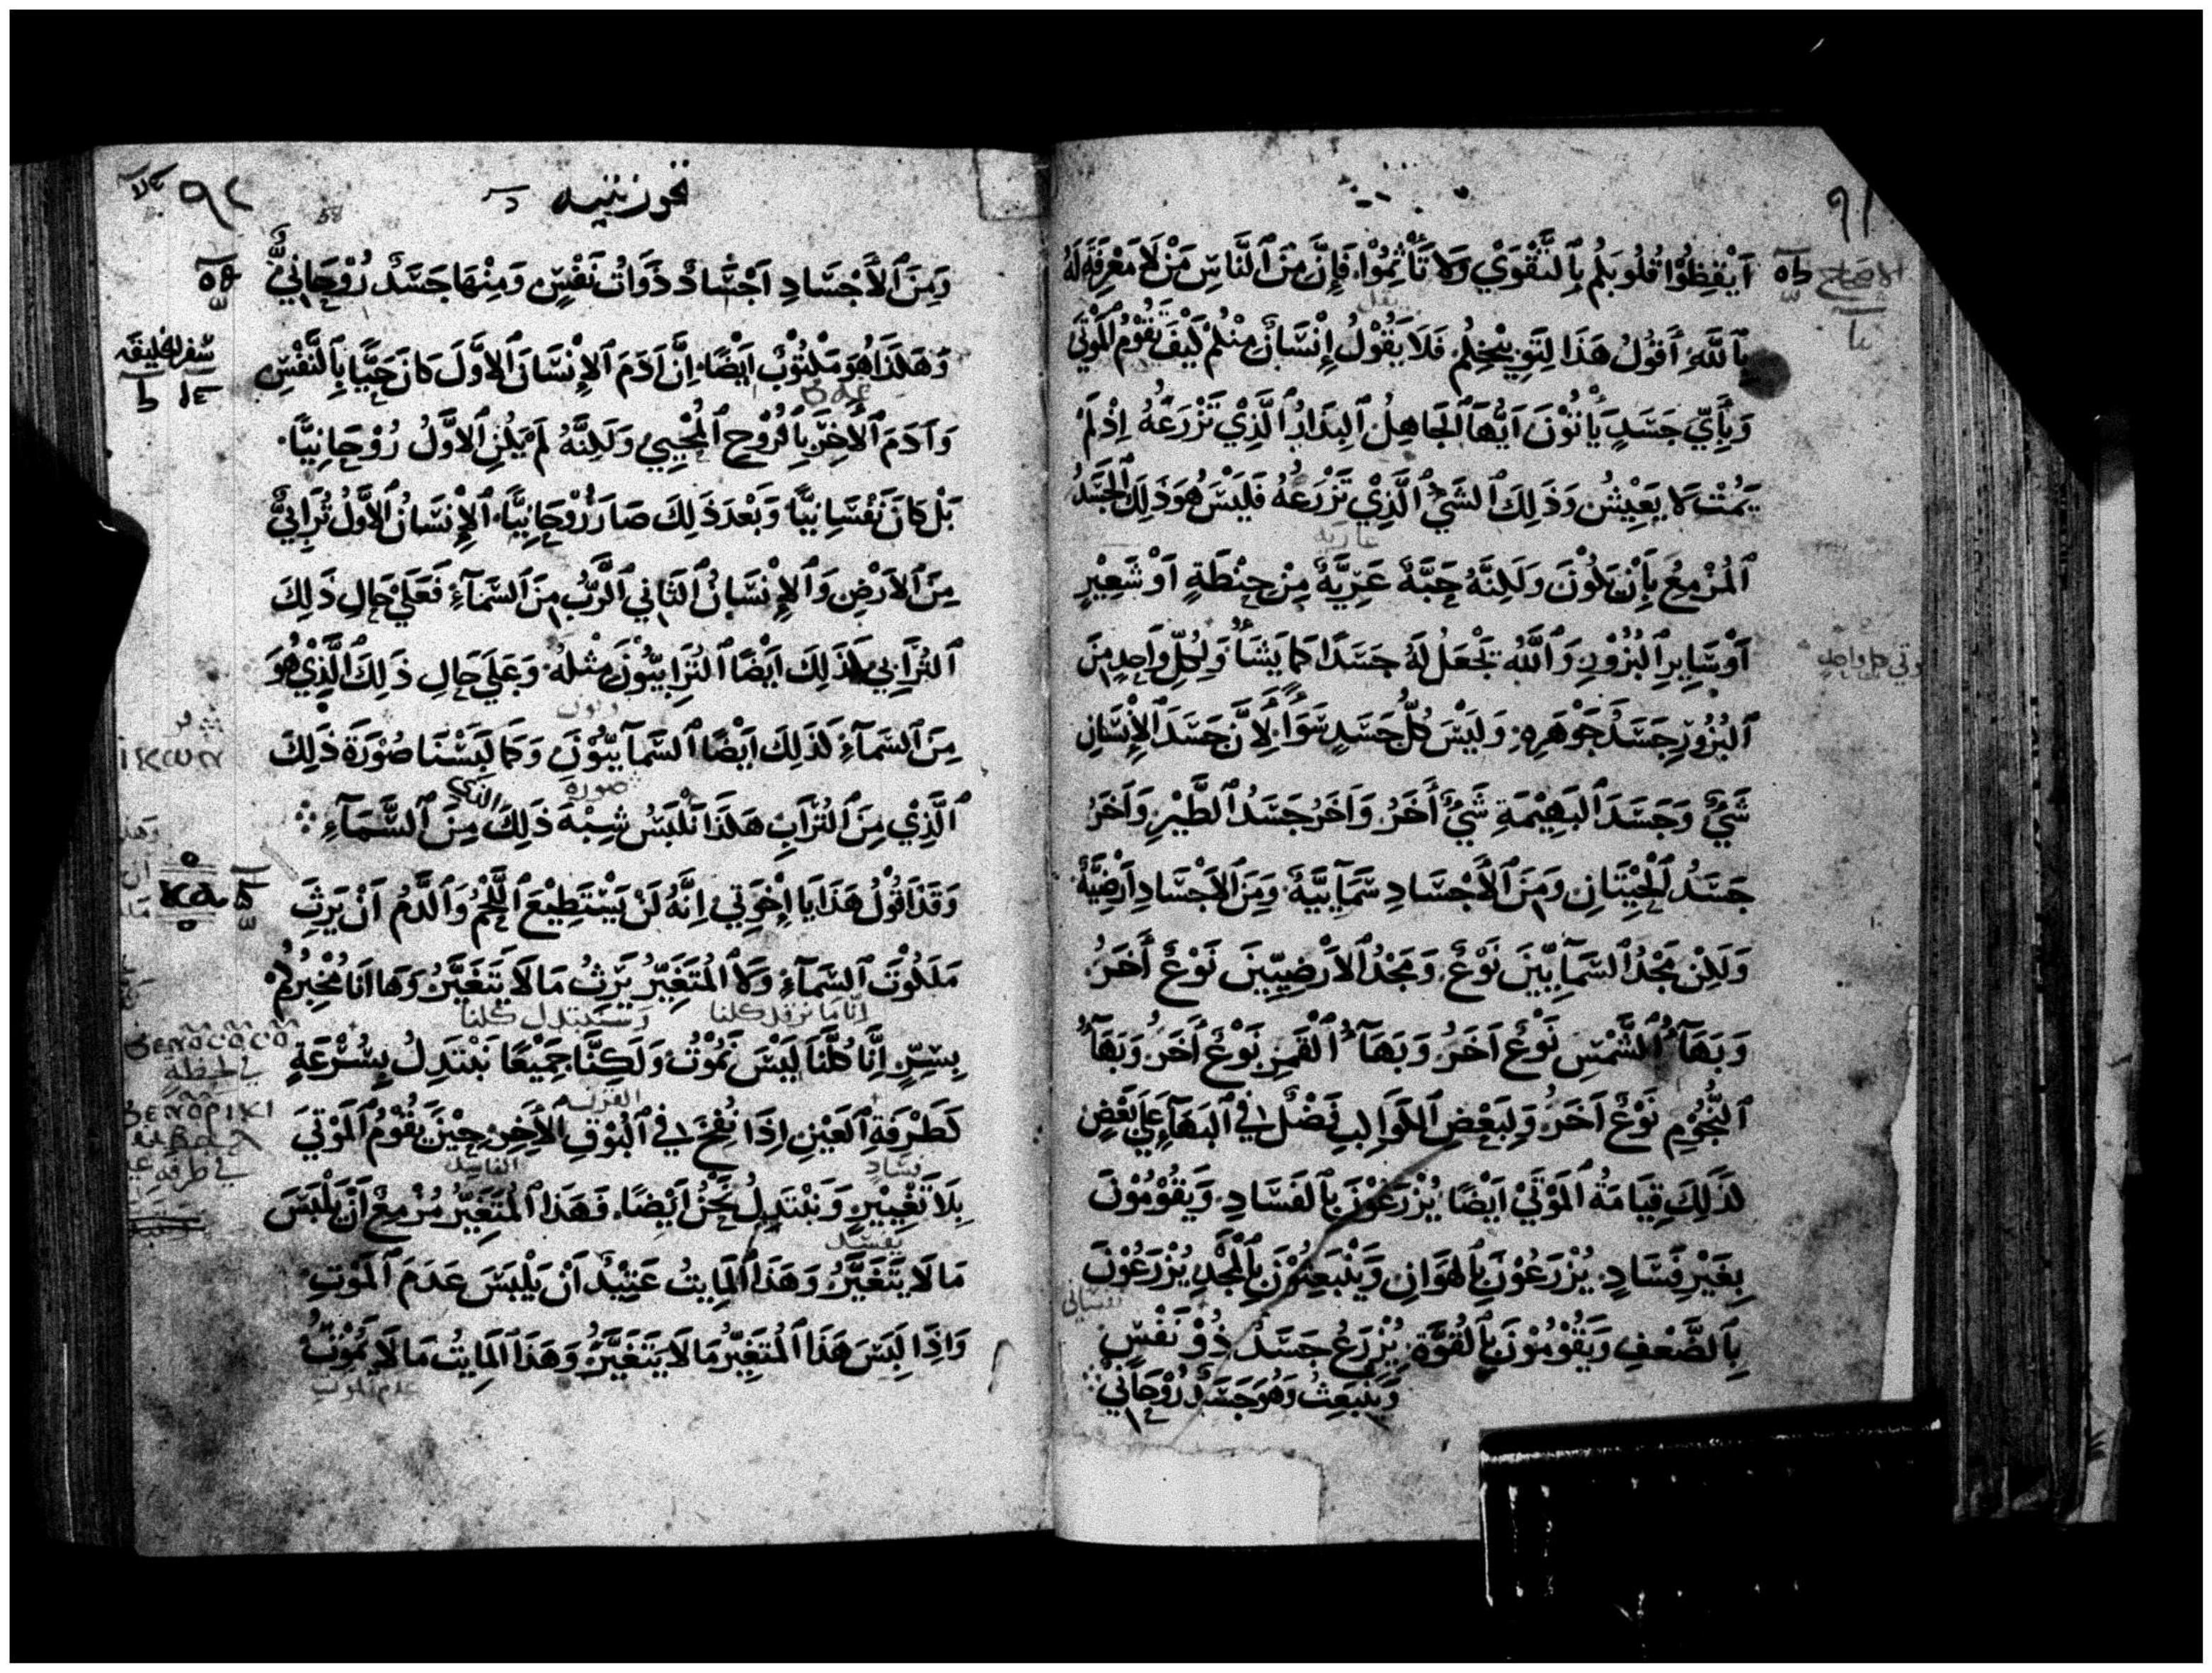 ٩١
اَيْقِظُوْا قُلُوبَكُم بِالتَّقْوَي وَلَا تَأْثِمُوْا، فَإِنَّ مِنَ النَّاسِ مَنْ لَا مَعْرِفَةَ لَهُ
بِاللَّهِ أَقُولُ هَذَا لِتَوبِيْخِكُم فَلَا يَقُوْلُ إِنْسَانٌ مِنْكُمْ كَيْفَ يَقُوْمُ الْمَوْتَي
وَبِأَيِّ جَسَدٍ يَأْتُوْنَ اَيُّهَا الجَاهِلُ الْبِدَارُ الَّذِيْ تَزْرَعُهُ اِذْ لَمْ
يَمُتْ لَا يَعِيْشُ وَذَلِكَ الشَيْ الَّذِيْ تَزْرَعُهُ فَلَيْسَ هُوَ ذَلِكَ الجَسَدُ
المُزْمِعُ بِأَنْ يَكُوْنَ وَلَكِنَّهُ حَبَّةٌ عَرِيَّةٌ مِنْ حِنْطَةٍ اَوْ شَعِيْرٍ
اَوْ سَايِرِ البُزُوْرِ وَاللَّهُ يَجْعَلُ لَهُ جَسَدًا كَمَا يَشَاءُ وَلِكُلِّ وَاحِدٍ مِنَ
البُزُوْرِ جَسَدُ جَوْهَرِهِ وَلَيْسَ كُلُّ جَسَدٍ سَوَاءً لِأَنَّ جَسَدَ الإِنْسَانِ
شَيْءٌ وَجَسَدَ البَهِيْمَةِ شَيْءٌ أَخَرُ وَاَخَرُ جَسَدُ الطَّيْرِ وَاَخَرُ
جَسَدُ الحِيْتَانِ وَمِنَ الأَجْسَادِ سَمَآيِيَّةٌ وَمِنَ الاَجْسَادِ أَرْضِيَّةٌ
وَلَكِنْ مَجْدُ السَمَآيِيِّينَ نَوْعٌ، وَمَجْدُ الاَرْضِيِّيِنَ نَوْعٌ أَخَرُ
وَبَهَآءُ الشَّمْسِ نَوْعٌ اَخَرُ وَبَهَآءُ الْقَمَرِ نَوْعٌ أَخَرُ وَبَهَآءُ
النُّجُوْمِ نَوْعٌ اَخَرُ وَلِبَعْضِ الكَوَاكِبِ فَضْلٌ فِي البَهَآءِ عَلَي بَعْضٍ
كَذَلِكَ قِيَامَةُ المَوْتَيْ اَيْضًا يُزْرَعُوْنَ بِالفَسَادِ وَيَقُوْمُوْنَ
بِغَيْرِ فَسَادٍ يُزْرَعُوْنَ بِالهَوَانِ وَيَنْبَعِثُوْنَ بِالْمَجْدِ يُزْرَعُوْنَ
بِالضَّعْفِ وَيَقُوْمُوْنَ بِالقُوَّةِ يُزْرَعُ جَسَدٌ ذُوْ نَفْسٍ
وَيَنْبَعِثُ وَهُوَ جَسَدٌ رُوْحَانِيٌّ
٩٢
وَمِنَ الأَجْسَادِ اَجْسَادٌ ذَوَاتُ نَفْسٍ وَمِنْهَا جَسَدٌ رُوْحَانِيٌّ
سفر الخليقه
وَهَكَذَا هُوَ مَكْتُوْبٌ اَيْضًا اِنَّ اَدَمَ الإِنْسَانَ الاَوَّلَ كَانَ حَيًّا بِالنَّفْسِ
وَاَدَمَ الأَخِرَ بِالرُوْحِ المُحْيِي وَلَكِنَّهُ لَمْ يَكُنِ الاَوَّلُ رُوْحَانِيًّا
بَلْ كَانَ نَفْسَانِيًّا وَبَعْدَ ذَلِكَ صَارَ رُوْحَانِيًّا الإِنْسَانُ الاَوَّلُ تُرَابِيٌّ
مِنَ الاَرْضِ وَالإِنْسَانُ الثَانِي الرَّبُّ مِنَ السَمَآءِ فَعَلَيْ حَالِ ذَلِكَ
التُرَابِي كَذَلِكَ اَيْضًا التُرَابِيُّوْنَ مِثْلَهُ وَعَلَي حَالِ ذَلِكَ الَّذِيْ هُوَ
مِنَ السَمَآءِ كَذَلِكَ اَيْضًا السَمَآيِيُّوْنَ وَكَمَا لَبِسْنَا صُوْرَةَ ذَلِكَ
صورة الذي
الَّذِيْ مِنَ التُرَابِ هَكَذَا نَلْبَسُ شِبْهَ ذَلِكَ مِنَ السَّمَآءِ
وَقَدْ اَقُوْلُ هَذَا يَا اِخْوَتِي اِنَّهُ لَنْ يَسْتَطِيْعَ اللَّحْمُ وَالدَّمُ اَنْ يَرِثَ
مَلَكُوْتَ السَمَآءِ وَلَا المُتَغَيِّرُ يَرِثُ مَا لَا يَتَغَيَّرُ وَهَا اَنَا مُخْبِرُكُمْ
بِسِرٍّ اِنَّا كُلَّنَا لَيْسَ نَمُوْتُ وَلَكِنَّا جَمِيْعًا نَبْتَدِلُ بِسُرْعَةٍ
كَطَرْفَةِ العَيْنِ اِذَا نُفِخَ فِي البُوْقِ الأَخِرِ حِيْنَ يَقُوْمُ المَوْتَي
بِلَا تَغْيِيْرٍ وَنَبْتَدِلُ نَحْنُ اَيْضًا فَهَذَا المُتَغَيِّرُ مُزْمِعٌ اَنْ يَلْبَسَ
مَا لَا يَتَغَيَّرُ وَهَذَا المَايِتُ عَتِيْدٌ اَنْ يَلْبَسَ عَدَمَ المَوْتِ
وَاِذَا لَبِسَ هَذَا المُتَغَيِّرُ مَا لَا يَتَغَيَّرُ وَهَذَا المَايِتُ مَا لَا يَمُوْتُ
عدم الموت